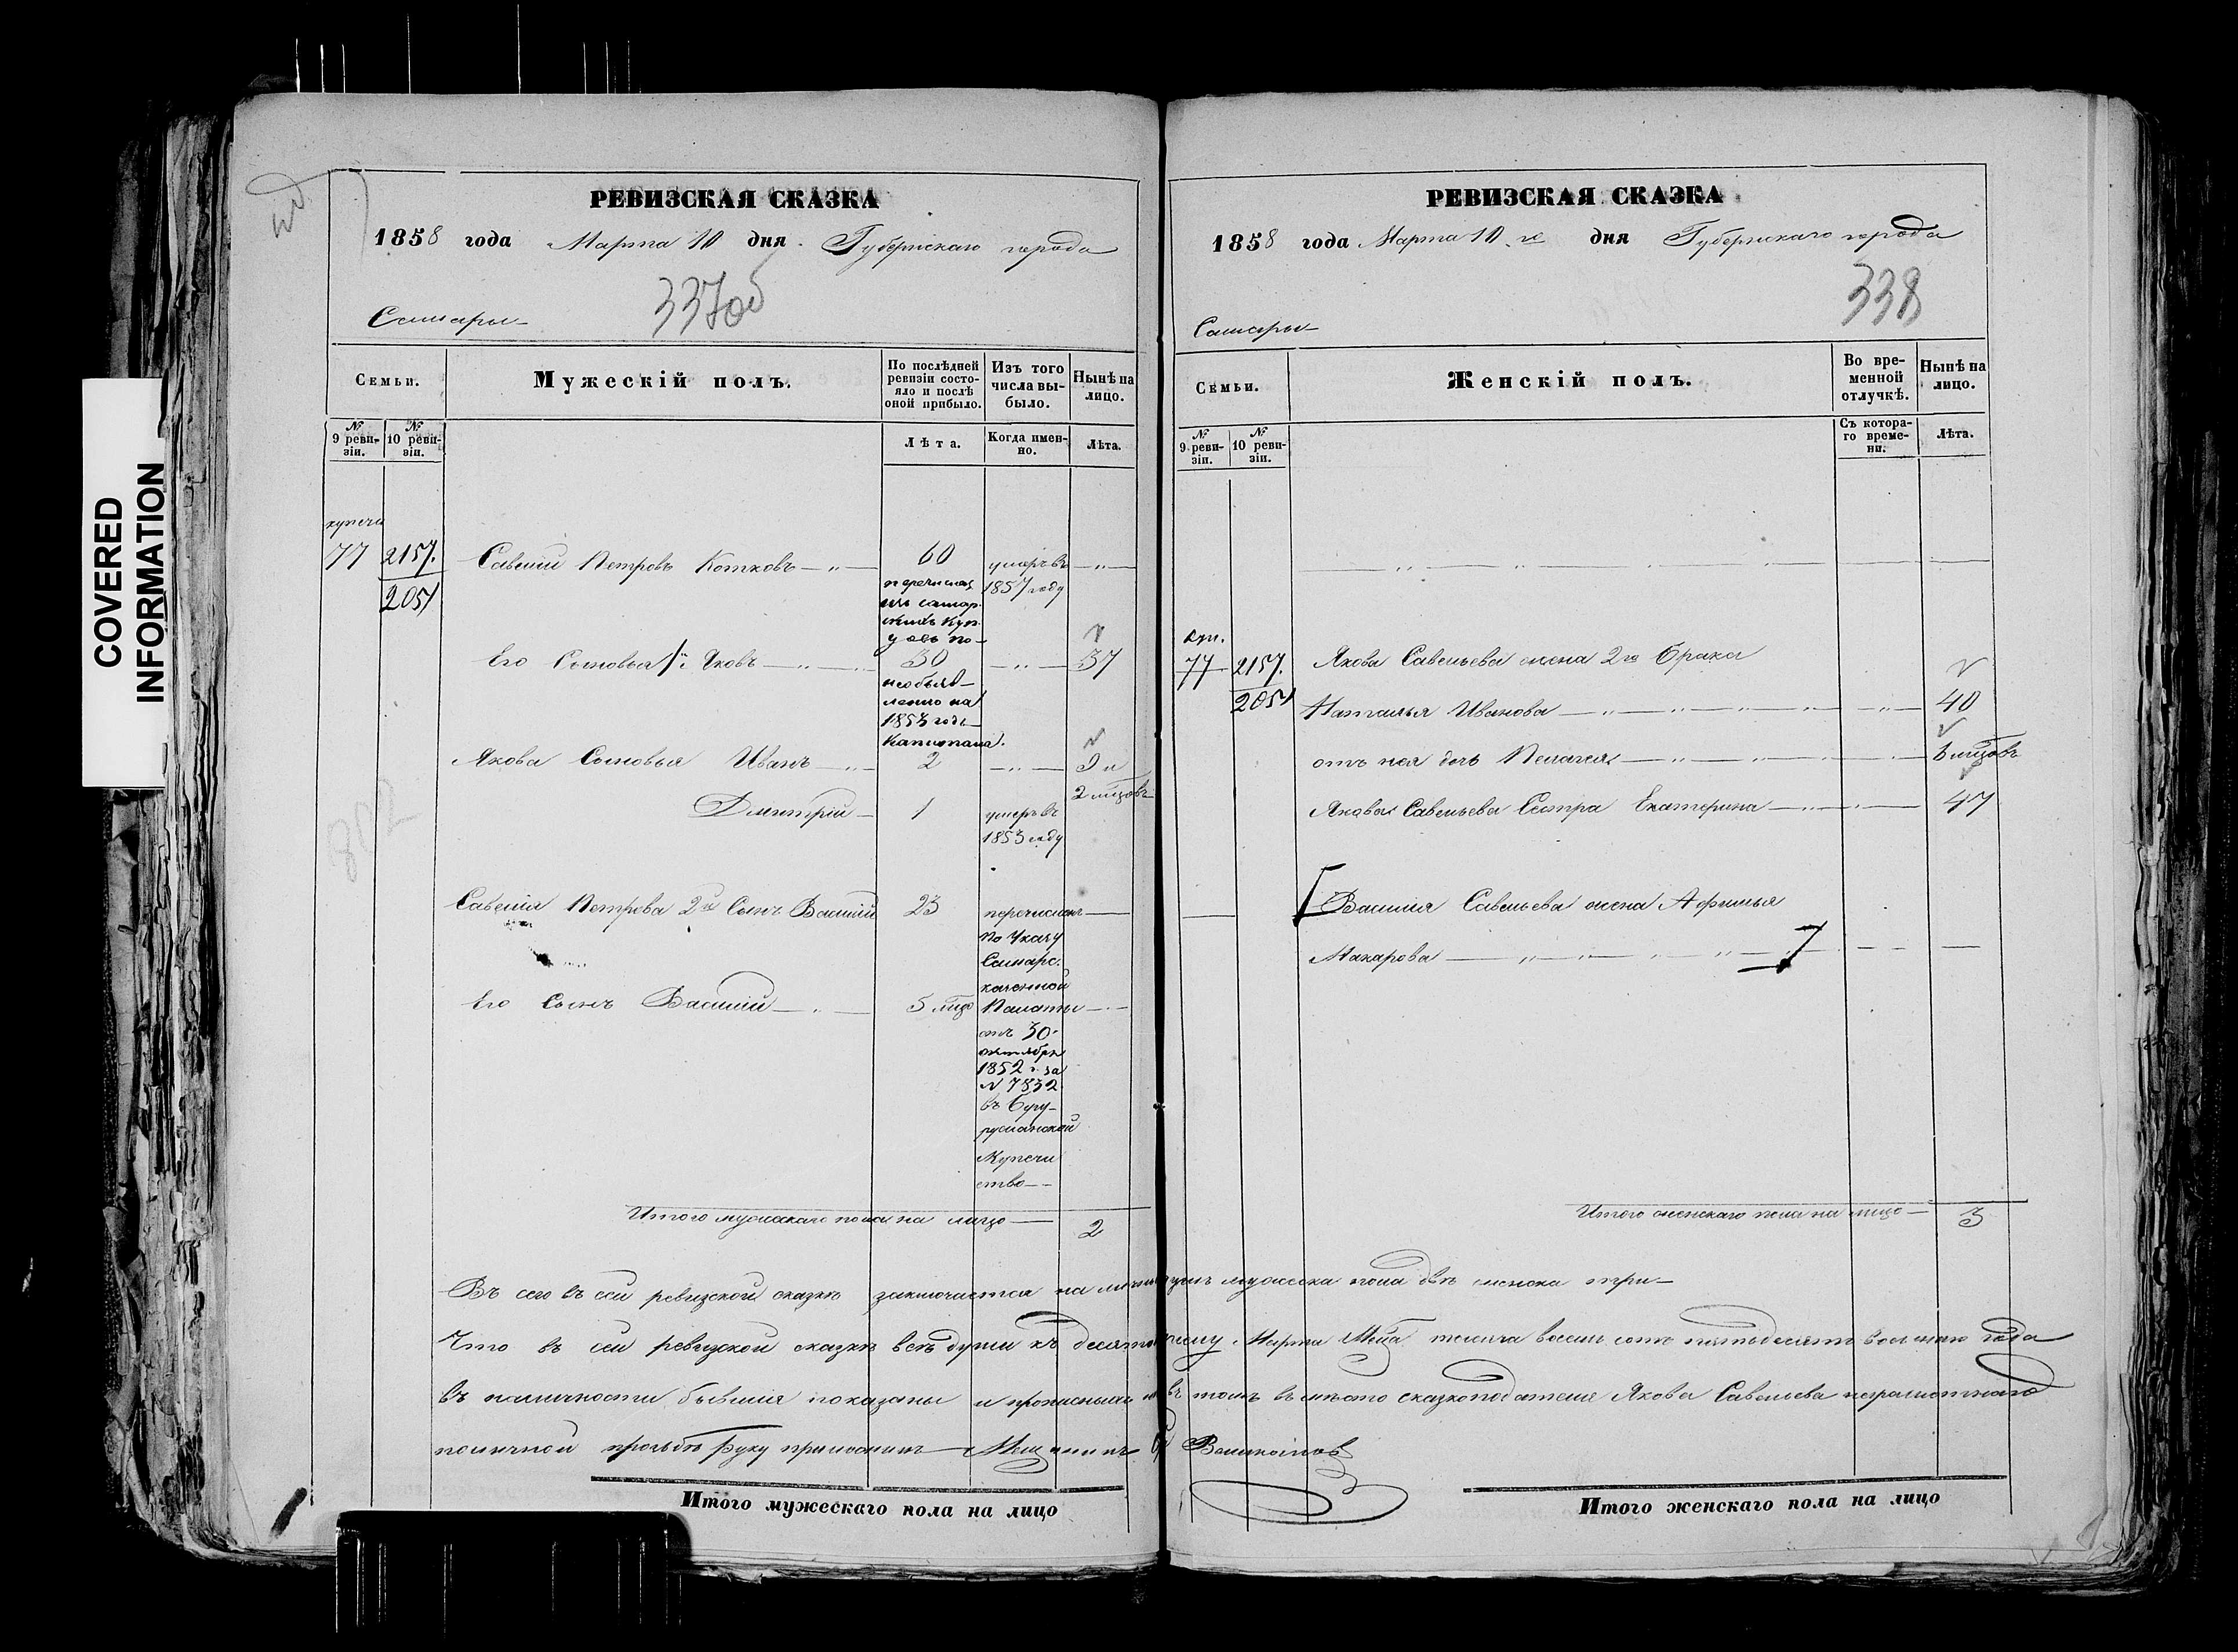 РЕВИЗСКАЯ СКАЗКА
1858 года Марта 10 дня Губернскаго города
337об
Самары
Семьи.
Мужескій полъ.
По послѣдней ревизіи состояло и послѣ оной прибыло.
Изъ того числа выбыло.
Нынѣ на лицо.
№ 9 ревизіи.
№ 10 ревизіи.
Лѣта.
Когда именно.
Лѣта.
купечи
77 2157. Савелій Петровъ Котковъ 60 умеръ въ
2051 перечислен 1857 году
изъ самар
скихъ куп
цовъ по
Его Сыновья 1й Яковъ 30 37
необъяв
лению на
1853 годъ
Капитала.
Якова Сыновья Иванъ 2 9 и
2 мцовъ
Дмитрій 1 умеръ въ
1853 году
Савелія Петрова 2й Сынъ Василій 23 перечисленъ
по Указу
Самарс.
казенной
Его Сынъ Василій 5 мцо Палаты
отъ 30
октября
1852 г. за
N 7832
въ Бугу-
русланской
Купечи
ство
Итого мужескаго пола на лицо 2
802
РЕВИЗСКАЯ СКАЗКА
1858 года Марта 10 го дня Губернскаго города
338
Самары
Семьи.
Женскій полъ.
Во временной отлучкѣ.
Нынѣ на лицо.
№ 9 ревизіи.
№ 10 ревизіи.
Съ котораго времени.
Лѣта.
куп.
77 2157. Якова Савельева жена 2го брака
2051 Наталья Иванова 40
отъ нея дочь Пелагея мцовъ
Якова Савельева Сестра Екатерина 47
Василия Савельева жена Афимья
Макарова
Итого женскаго пола на лицо 3
Въ сей ревизской сказкѣ заключается на лицо душъ мужеска пола двѣ женска три
Что въ сей ревизской сказкѣ всѣ души къ десятому Марта Мца тысяча восемь сотъ пятьдесятъ восьмаго года
въ наличности бывшія показаны и прописныхъ въ томъ вмѣсто сказкоподателя Якова Савельева неграмотнаго
по личной прозьбѣ руку приложилъ Мещанинъ
Итого мужескаго пола на лицо
Итого женскаго пола на лицо
COVERED
INFORMATION